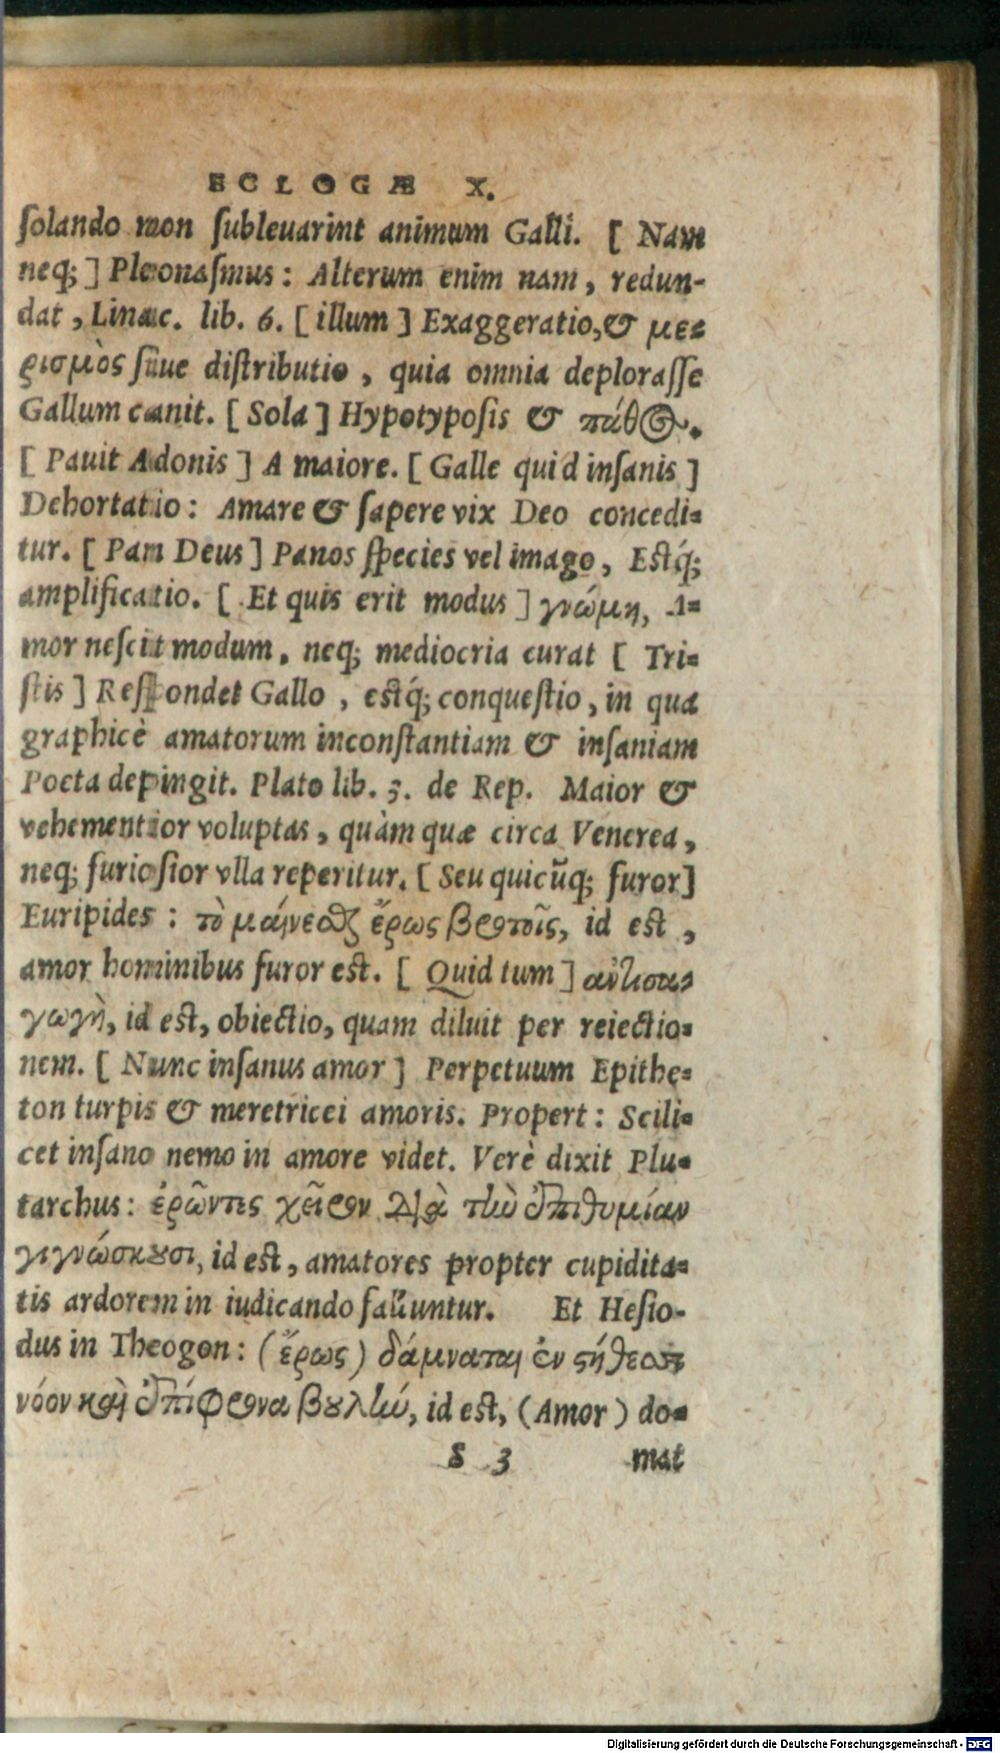 ECLOGÆ X.
ſolando non ſubleuarint animum Galli. [ Nam
neq; ] Pleonaſmus : Alterum enim nam, redun-
dat, Linac. lib. 6. [ illum ] Exaggeratio, & με-
ρισμὸς ſiue diſtributio, quia omnia deploraſſe
Gallum canit. [ Sola ] Hypotypoſis & πάθος.
[ Pauit Adonis ] A maiore. [ Galle quid inſanis ]
Dehortatio : Amare & ſapere vix Deo concedi-
tur. [ Pan Deus ] Panos ſpecies vel imago, Eſtq́;
amplificatio. [ Et quis erit modus ] γνώμη, A-
mor neſcit modum, neq; mediocria curat [ Tri-
ſtis ] Reſpondet Gallo, eſtq́; conqueſtio, in qua
graphicè amatorum inconſtantiam & inſaniam
Poeta depingit. Plato lib. 3. de Rep. Maior &
vehementior voluptas, quàm quæ circa Venerea,
neq; furioſior vlla reperitur. [ Seu quicũq; furor]
Euripides : τὸ μαίνεσθαι ἔρως βροτοῖς, id eſt,
amor hominibus furor eſt. [ Quid tum ] ἀντισα-
γωγὴ, id eſt, obiectio, quam diluit per reiectio-
nem. [ Nunc inſanus amor ] Perpetuum Epithe-
ton turpis & meretricei amoris. Propert : Scili-
cet inſano nemo in amore videt. Verè dixit Plu-
tarchus : ἐρῶντες χεῖρον διὰ τὴν ἐπιθυμίαν
γιγνώσκουσι, id eſt, amatores propter cupidita-
tis ardorem in iudicando falluntur. Et Heſio-
dus in Theogon : (ἔρως) δάμναται ἐν στήθεσσι
νόον καὶ ἐπίφρονα βουλὴν, id eſt, (Amor) do-
S 3 mat
Digitalisierung gefördert durch die Deutsche Forschungsgemeinschaft - DFG